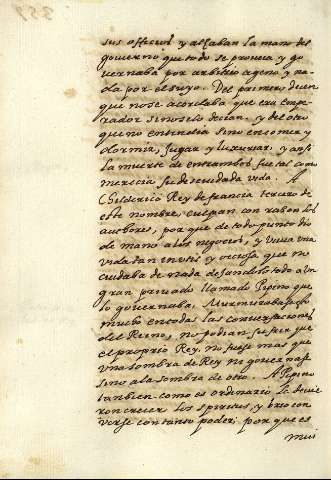 357
sus officios y alçaban la mano del
govierno, que todo se proveia y go
vernaba por arbitrio ageno y na-
da por el suyo. Del primero dicen
que no se acordaba que era Empe-
rador si no se lo decian. y del otro
que no entendia sino en comer y
dormir, jugar y luxuriar. y ansi
la muerte de entrambos fue tal como
merecia su descuidada vida. A
Childerico Rey de francia tercero de
este nombre, culpan con raçon los
auctores, porque de todo punto dio
de mano a los negocios, y vivia una
vida tan inutil y ociosa que no
cuidaba de nada dejandolo todo a un
gran privado llamado Pipino que
lo governaba. Murmurabase
mucho en todas las conversaciones
del Reino, no podian sufrir que
el proprio Rey, no fuese mas que
una sombra de Rey no governase
sino a la sombra de otro. A Pipino
tambien como es ordinario le devie
ron crecer los spiritus, y brio con
verse con tanto poder; porque es
mui